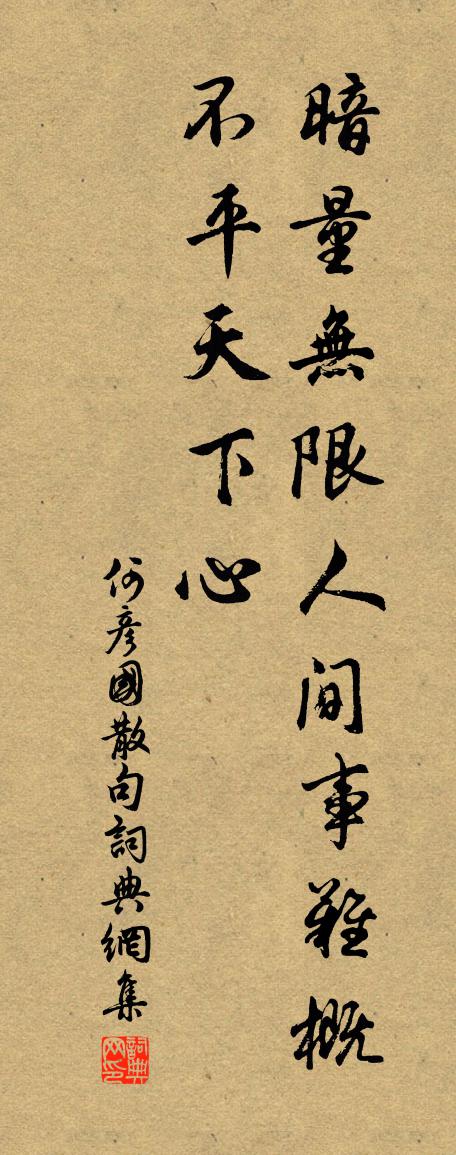 暗量無限人间事難概
不平天下心
何彥國散句詞典網集
詞典网印